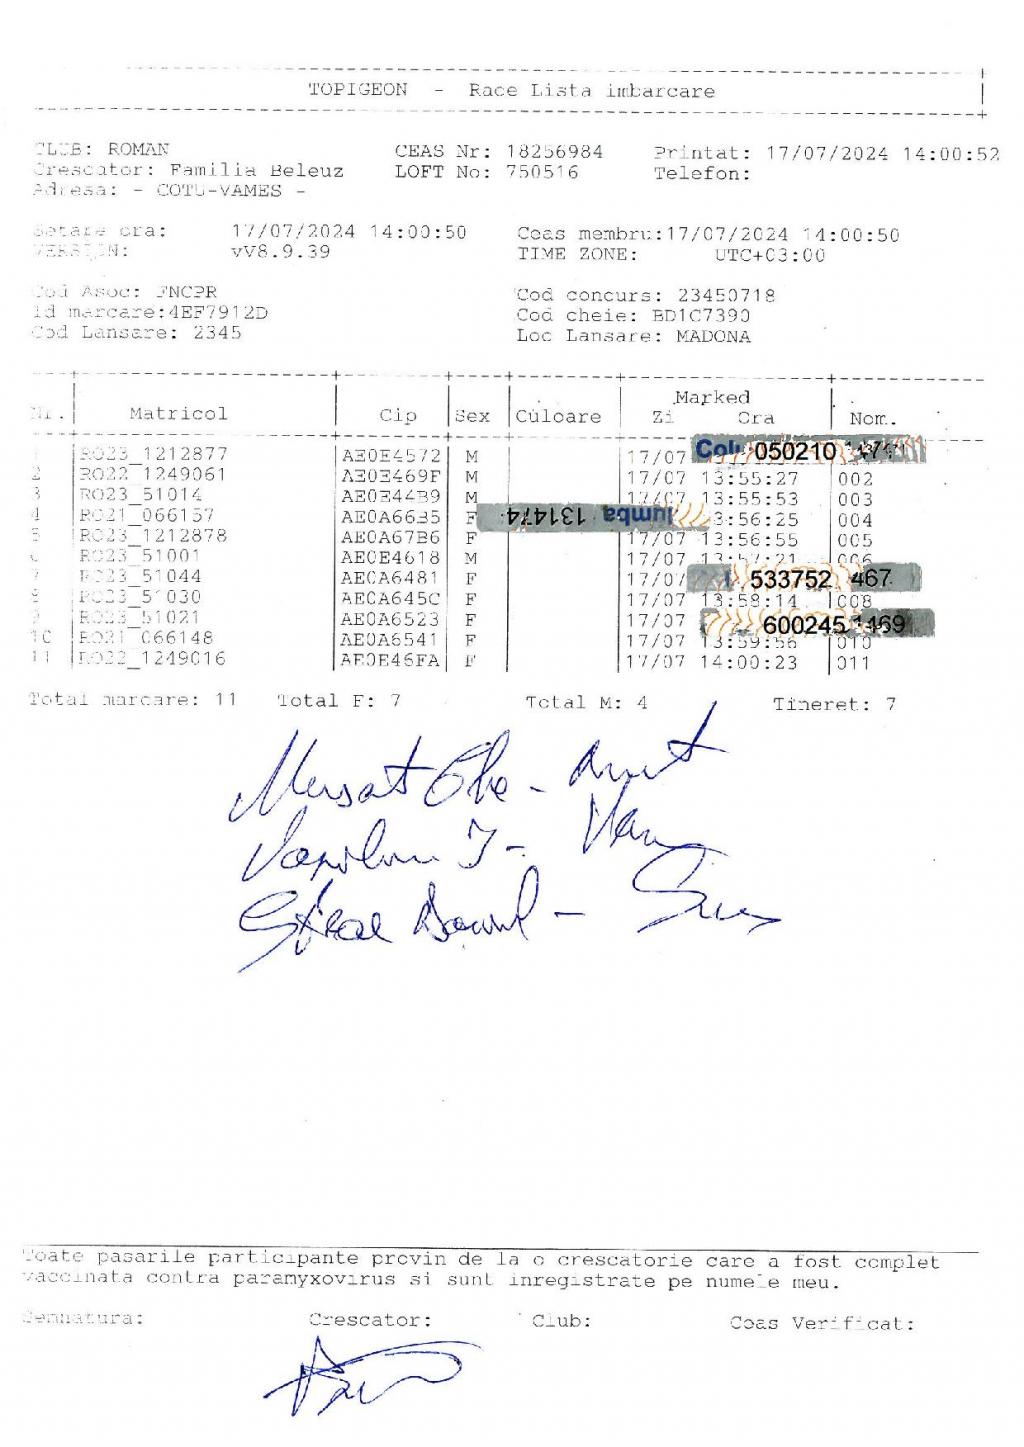 TOPIGEON - Race Lista imbarcare
CLUB: ROMAN CEAS Nr: 18256984 Printat: 17/07/2024 14:00:52
Crescator: Familia Beleuz LOFT No: 750516 Telefon:
Adresa: - COTU-VAMES -
Setare ora: 17/07/2024 14:00:50 Ceas membru:17/07/2024 14:00:50
VERSION: vV8.9.39 TIME ZONE: UTC+03:00
Cod Asoc: FNCPR Cod concurs: 23450718
Id marcare:4EF7912D Cod cheie: BD1C7390
Cod Lansare: 2345 Loc Lansare: MADONA
Marked
Nr. Matricol Cip Sex Culoare Zi Ora Nom.
1 RO23_1212877 AE0E4572 M 17/07 050210
2 RO22_1249061 AE0E469F M 17/07 13:55:27 002
3 RO23_51014 AE0E44B9 M 17/07 13:55:53 003
4 RO21_066157 AE0A66B5 F lumba 131474 3:56:25 004
5 RO23_1212878 AE0A67B6 F 17/07 13:56:55 005
6 RO23_51001 AE0E4618 M 17/07 13:57:21 006
7 RO23_51044 AE0A6481 F 17/07 533752 467
8 RO23_51030 AE0A645C F 17/07 13:58:14 008
9 RO23_51021 AE0A6523 F 17/07 600245 1469
10 RO21_066148 AE0A6541 F 17/07 13:59:56 010
11 RO22_1249016 AE0E46FA F 17/07 14:00:23 011
Total marcare: 11 Total F: 7 Total M: 4 Tineret: 7
Toate pasarile participante provin de la o crescatorie care a fost complet
vaccinata contra paramyxovirus si sunt inregistrate pe numele meu.
Semnatura: Crescator: Club: Ceas Verificat: